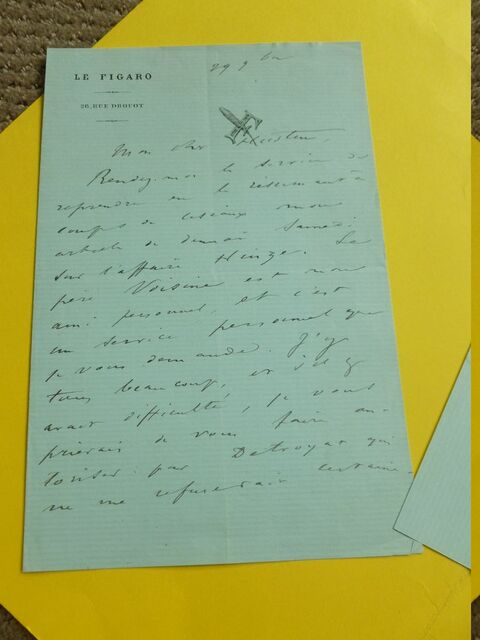 LE FIGARO
26, RUE DROUOT
29 9bre
Mon cher
Rendez-moi le service de
reprendre en le resserrant à
coups de ciseaux mon
article de demain Samedi
sur l'affaire Heinze. Le
père Voisine est mon
ami personnel, et c'est
un service personnel que
je vous demande. J'y
tiens beaucoup, et s'il y
avait difficulté, je vous
prierais de vous faire au-
toriser par Detroyat qui
ne me refuserait certaine-